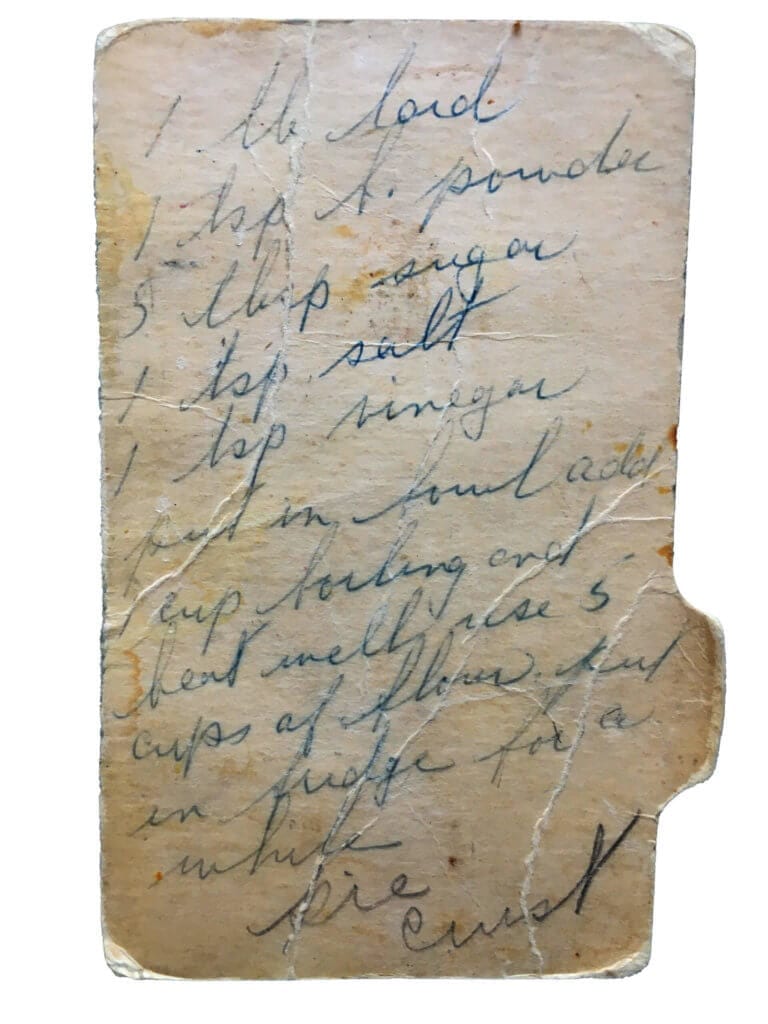 1 lb lard
1 tsp b. powder
5 tbsp sugar
1 tsp salt
1 tsp vinegar
put in bowl add
1 cup boiling and
beat well, use 5
cups of flour. put
in fridge for a
while
pie
crust